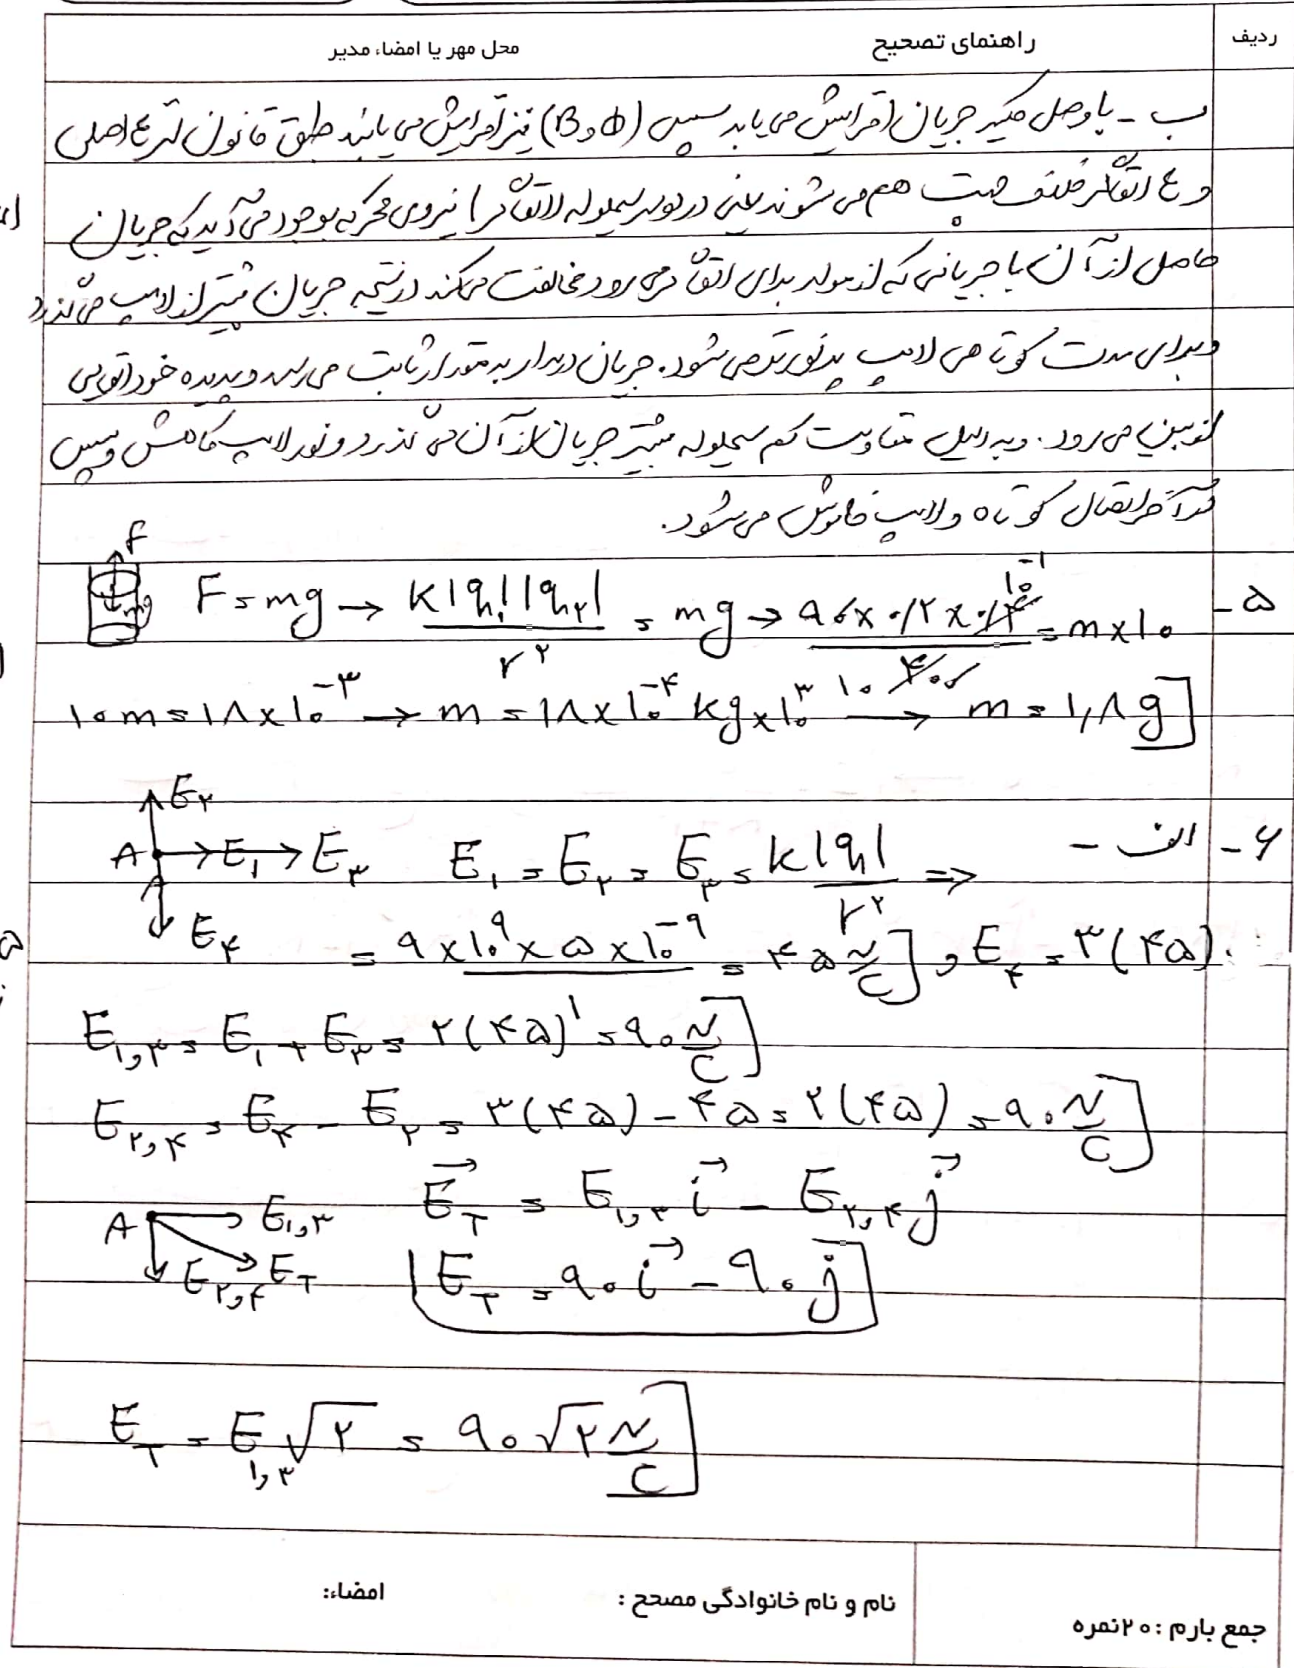 ردیف
راهنمای تصحیح
محل مهر یا امضاء مدیر
ب - با وصل کلید جریان افزایش می یابد سپس (B و Φ) نیز افزایش می یابند طبق قانون لنز ع اصلی
و ع القاگر مخالف جهت هم می شوند یعنی در دو سر سیملوله (القاگر) نیروی محرکه بوجود می آید که جریان
حاصل از آن با جریانی که از مولد برای القاگر می رود مخالفت میکند در نتیجه جریان بیشتر از لامپ می گذرد
و برای مدت کوتاهی لامپ پرنورتر می شود. جریان در مدار به مقدار ثابت می رسد و پدیده خود القایی
از بین می رود. و به دلیل مقاومت کم سیملوله بیشتر جریان از آن می گذرد و نور لامپ کاهش و سپس
در آخر اتصال کوتاه و لامپ خاموش می شود.
۵-
F mg F = mg → K|q₁||q₂| / r² = mg → ۹۰ × ۰/۲ × ۰/۴ ۱۰⁻¹ / ۴۰۰ ۱۰ = m × ۱۰
۱۰m = ۱۸ × ۱۰⁻³ → m = ۱۸ × ۱۰⁻⁴ kg × ۱۰³ → m = ۱,۸ g
۶- الف -
E₂
A E₁ E₃ E₁ = E₂ = E₃ = K|q₁| / r² ⇒
E₄ = ۹ × ۱۰⁹ × ۵ × ۱۰⁻⁹ / ۱ = ۴۵ N/C و E₄ = ۳(۴۵)
E₁,₃ = E₁ + E₃ = ۲(۴۵) = ۹۰ N/C
E₂,₄ = E₄ - E₂ = ۳(۴۵) - ۴۵ = ۲(۴۵) = ۹۰ N/C
A E₁,₃ E_T = E₁,₃ i - E₂,₄ j
E₂,₄ E_T E_T = ۹۰ i - ۹۰ j
E_T = E₁,₃ √۲ = ۹۰√۲ N/C
جمع بارم : ۲۰ نمره
نام و نام خانوادگی مصحح :
امضاء: